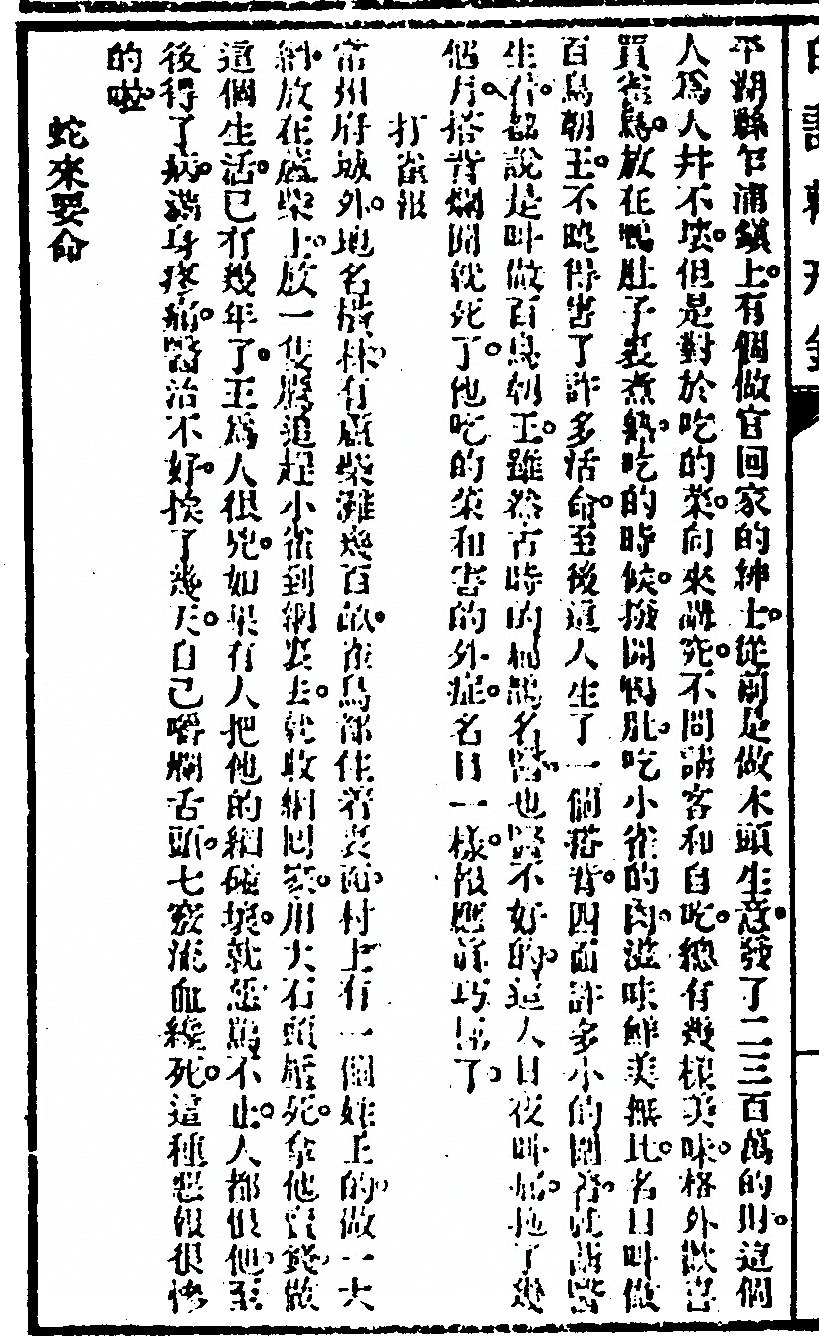 平湖縣乍浦鎮上。有個做官回家的紳士。從前是做木頭生意。發了二三百萬的財。這個
人爲人并不壞。但是對於吃的菜。向來講究。不問請客和自吃。總有幾樣美味。格外歡喜
買雀鳥。放在鴨肚子裏煮熟。吃的時候。撥開鴨肚。吃小雀的肉。滋味鮮美無比。名目叫做
百鳥朝王。不曉得害了許多活命。至後這人生了一個搭背。四面許多小的圍着。就請醫
生看。都說是叫做百鳥朝王。雖然古時的扁鵲名醫。也醫不好的。這人日夜叫喊。拖了幾
個月。搭背爛開就死了。他吃的菜和害的外症。名目一樣。報應眞巧極了。
打雀報
常州府城外。地名橫林。有蘆柴灘幾百畝。雀鳥都住着裏面。村上有一個姓王的。做一大
網。放在蘆柴上。放一隻鷹追趕小雀到網裏去。就收網回家。用大石頭壓死。拿他賣錢。做
這個生活。已有幾年了。王爲人很兇。如果有人把他的網碰壞。就惡罵不止。人都恨他。至
後得了病。滿身疼痛。醫治不好。挨了幾天。自己嚼爛舌頭。七竅流血纔死。這種惡報很慘
的啦。
蛇來要命